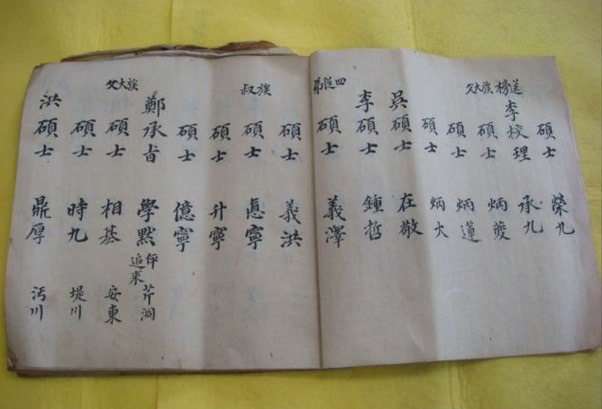 碩士 榮九
送榜族大父
李校理 承九
碩士 炳夔
碩士 炳蓮
碩士 炳大
吳碩士 在敬
李碩士 鍾哲
四從弟
碩士 義澤
碩士 義洪
族叔
碩士 悳寧
碩士 升寧
碩士 億寧
鄭承旨 學默 伻追來 芹洞
族大父
碩士 相基 安東
碩士 時九 堤川
洪碩士 鼎厚 沔川